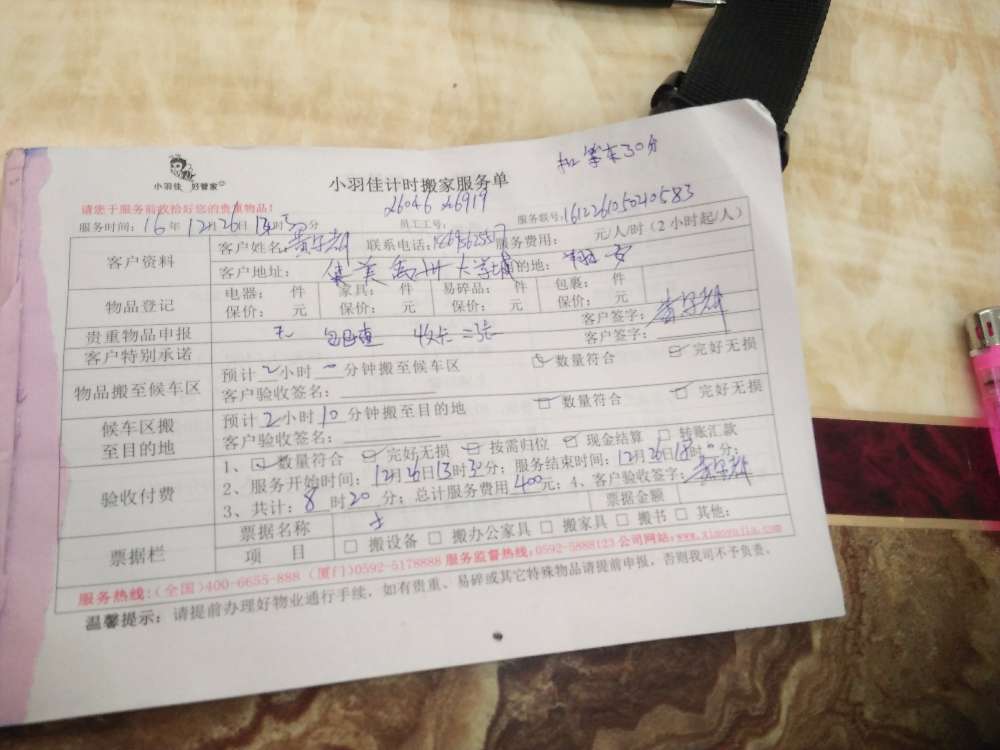 扣等车30分
小羽佳 好管家
小羽佳计时搬家服务单
请您于服务前收拾好您的贵重物品!
26046 26919
服务时间: 16年12月26日13时 分 员工工号: 服务联号: 1612261050210583
客户资料
客户姓名: 联系电话: 服务费用: 元/人/时(2小时起/人)
客户地址: 集美 大学城 目的地: 翔安
物品登记
电器: 件 家具: 件 易碎品: 件 包裹: 件
保价: 元 保价: 元 保价: 元 保价: 元
客户签字:
贵重物品申报 无 收卡二张 客户签字:
客户特别承诺
物品搬至候车区
预计2小时 分钟搬至候车区 数量符合 完好无损
客户验收签名:
候车区搬至目的地
预计2小时10分钟搬至目的地 数量符合 完好无损
客户验收签名:
验收付费
1、数量符合 完好无损 按需归位 现金结算 转账汇款
2、服务开始时间: 12月26日13时30分; 服务结束时间: 12月26日18时 分;
3、共计: 8时20分; 总计服务费用400元; 4、客户验收签字:
票据栏
票据名称 票据金额
项目 搬设备 搬办公家具 搬家具 搬书 其他:
服务热线:(全国)400-6655-888 (厦门)0592-5178888 服务监督热线:0592-5888123 公司网站:www.xiaoyujia.com
温馨提示: 请提前办理好物业通行手续, 如有贵重、易碎或其它特殊物品请提前申报, 否则我司不予负责。